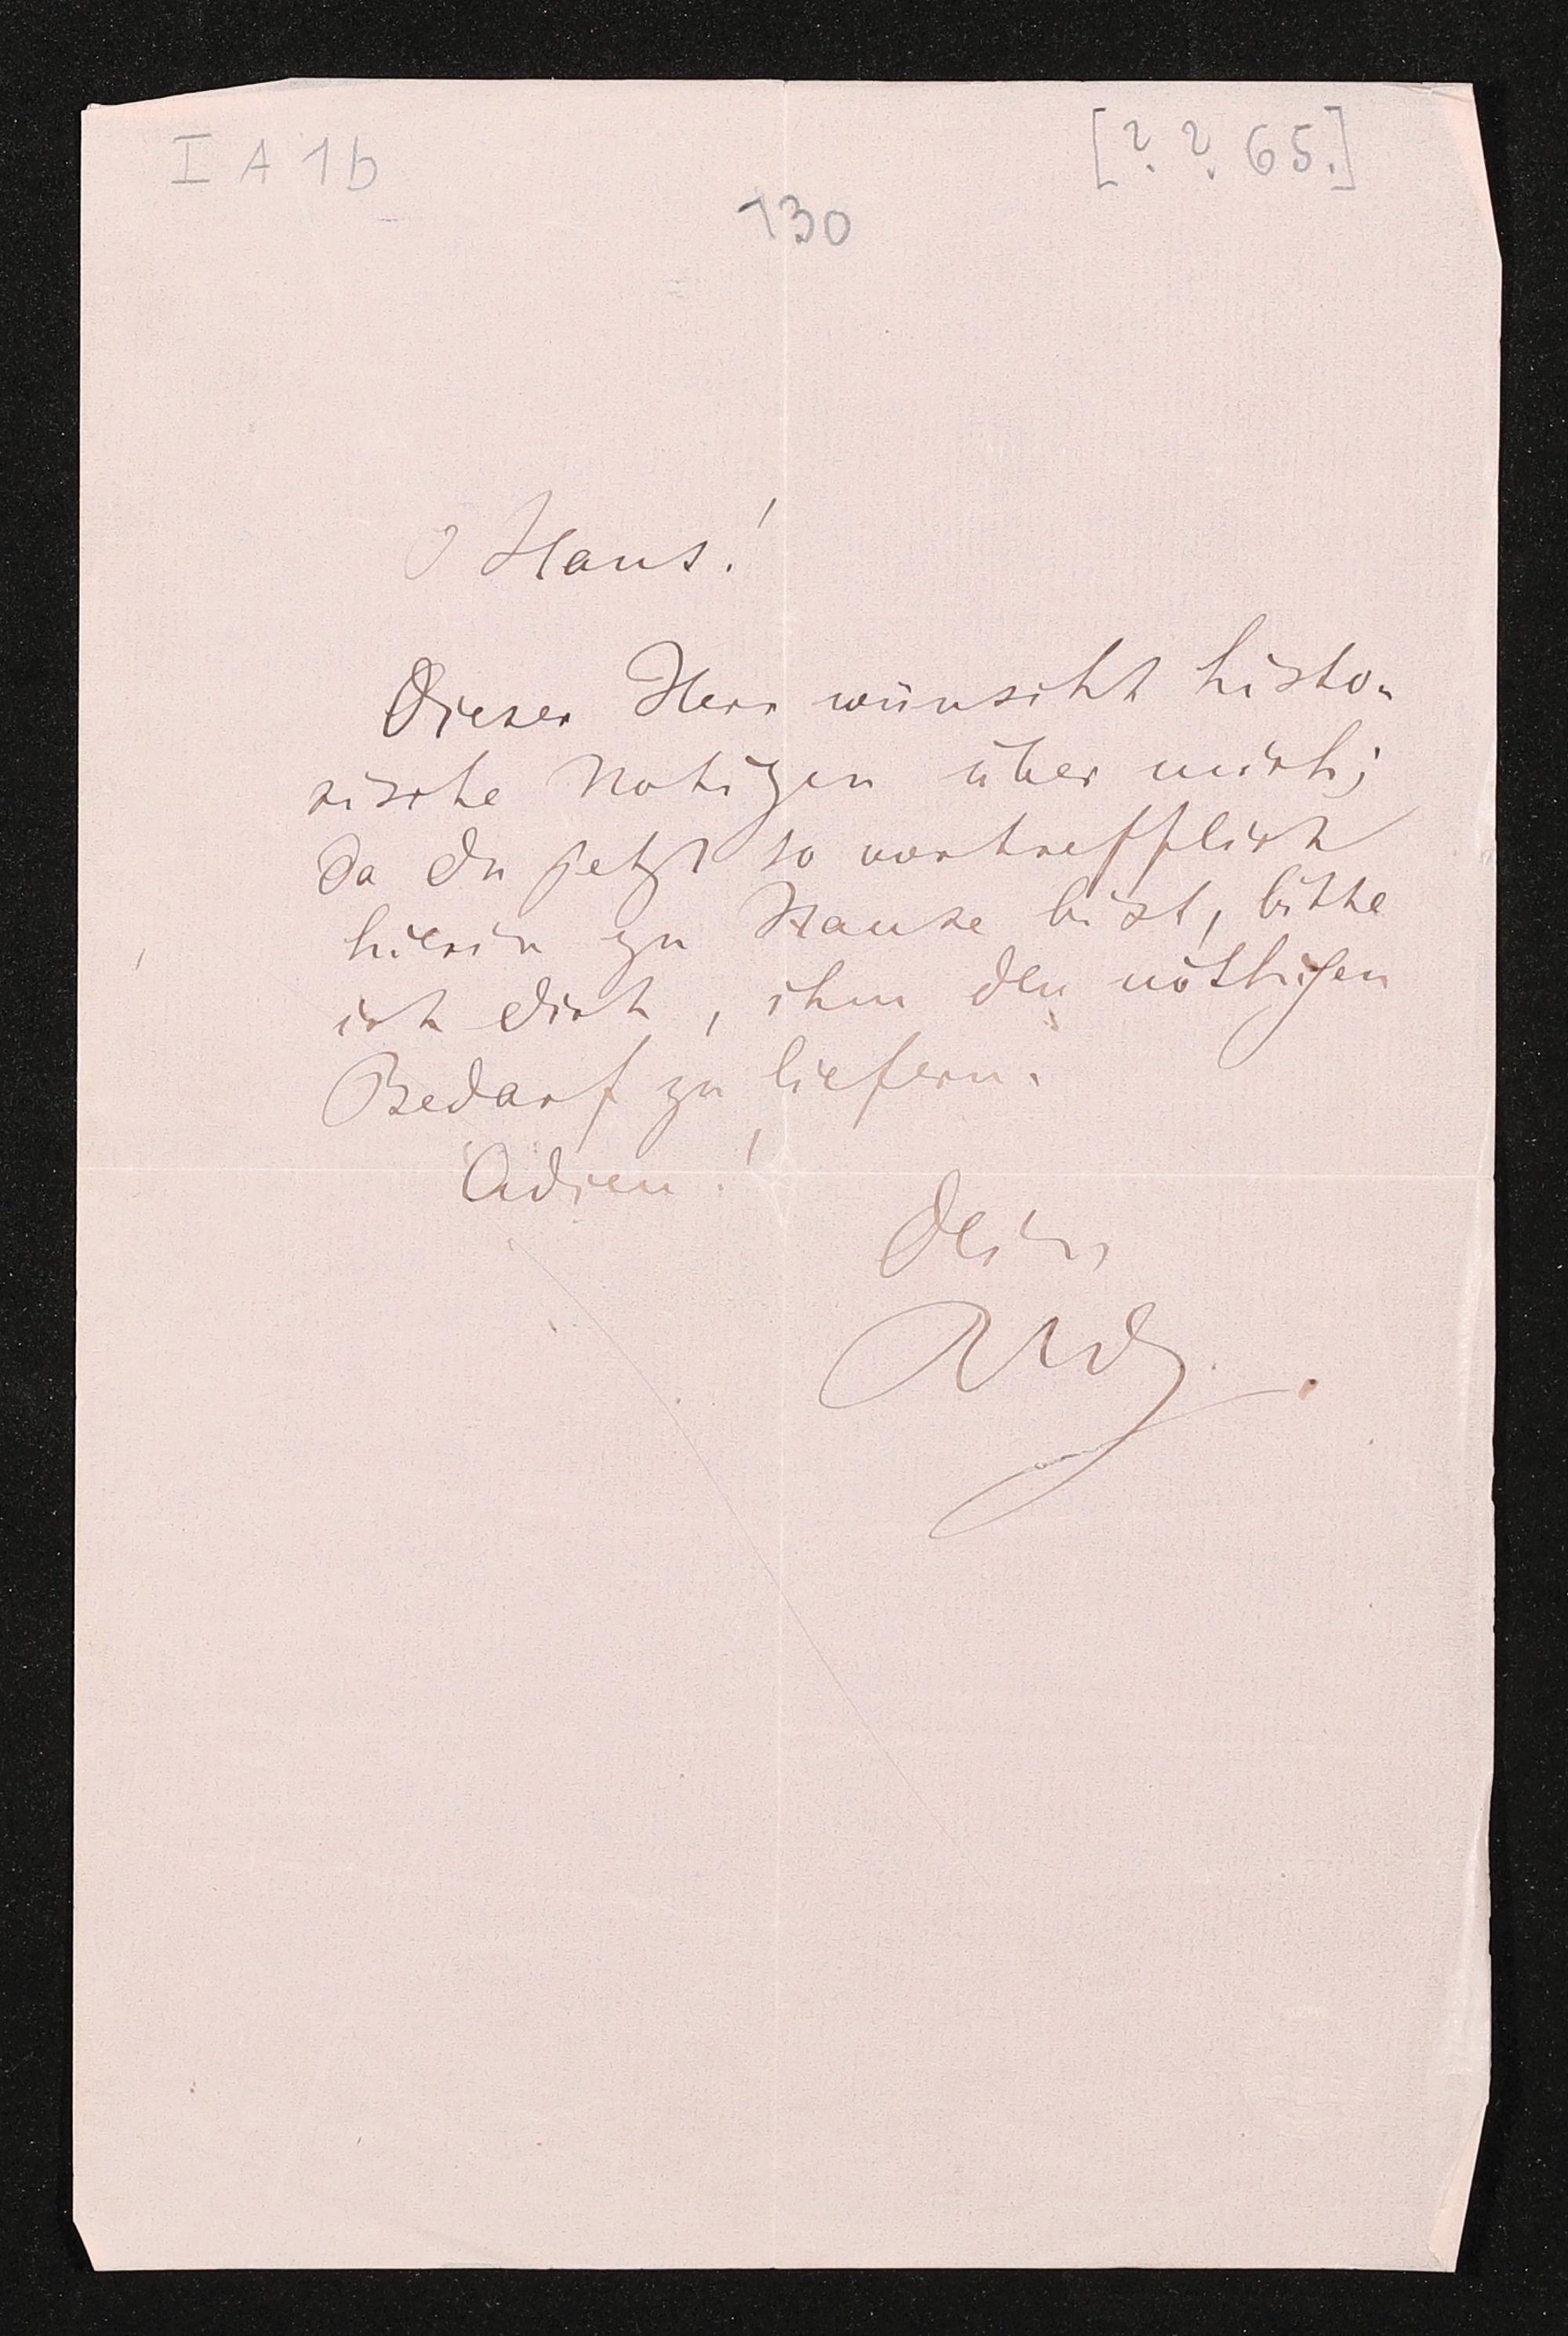 I A 1b
[? ? 65.]
130
O Hans!
Dieser Herr wünscht histo-
rische Notizen über mich;
da du jetzt so vortrefflich
hierin zu Hause bist, bitte
ich dich, ihm den nöthigen
Bedarf zu liefern.
Adieu!
Dein
RW